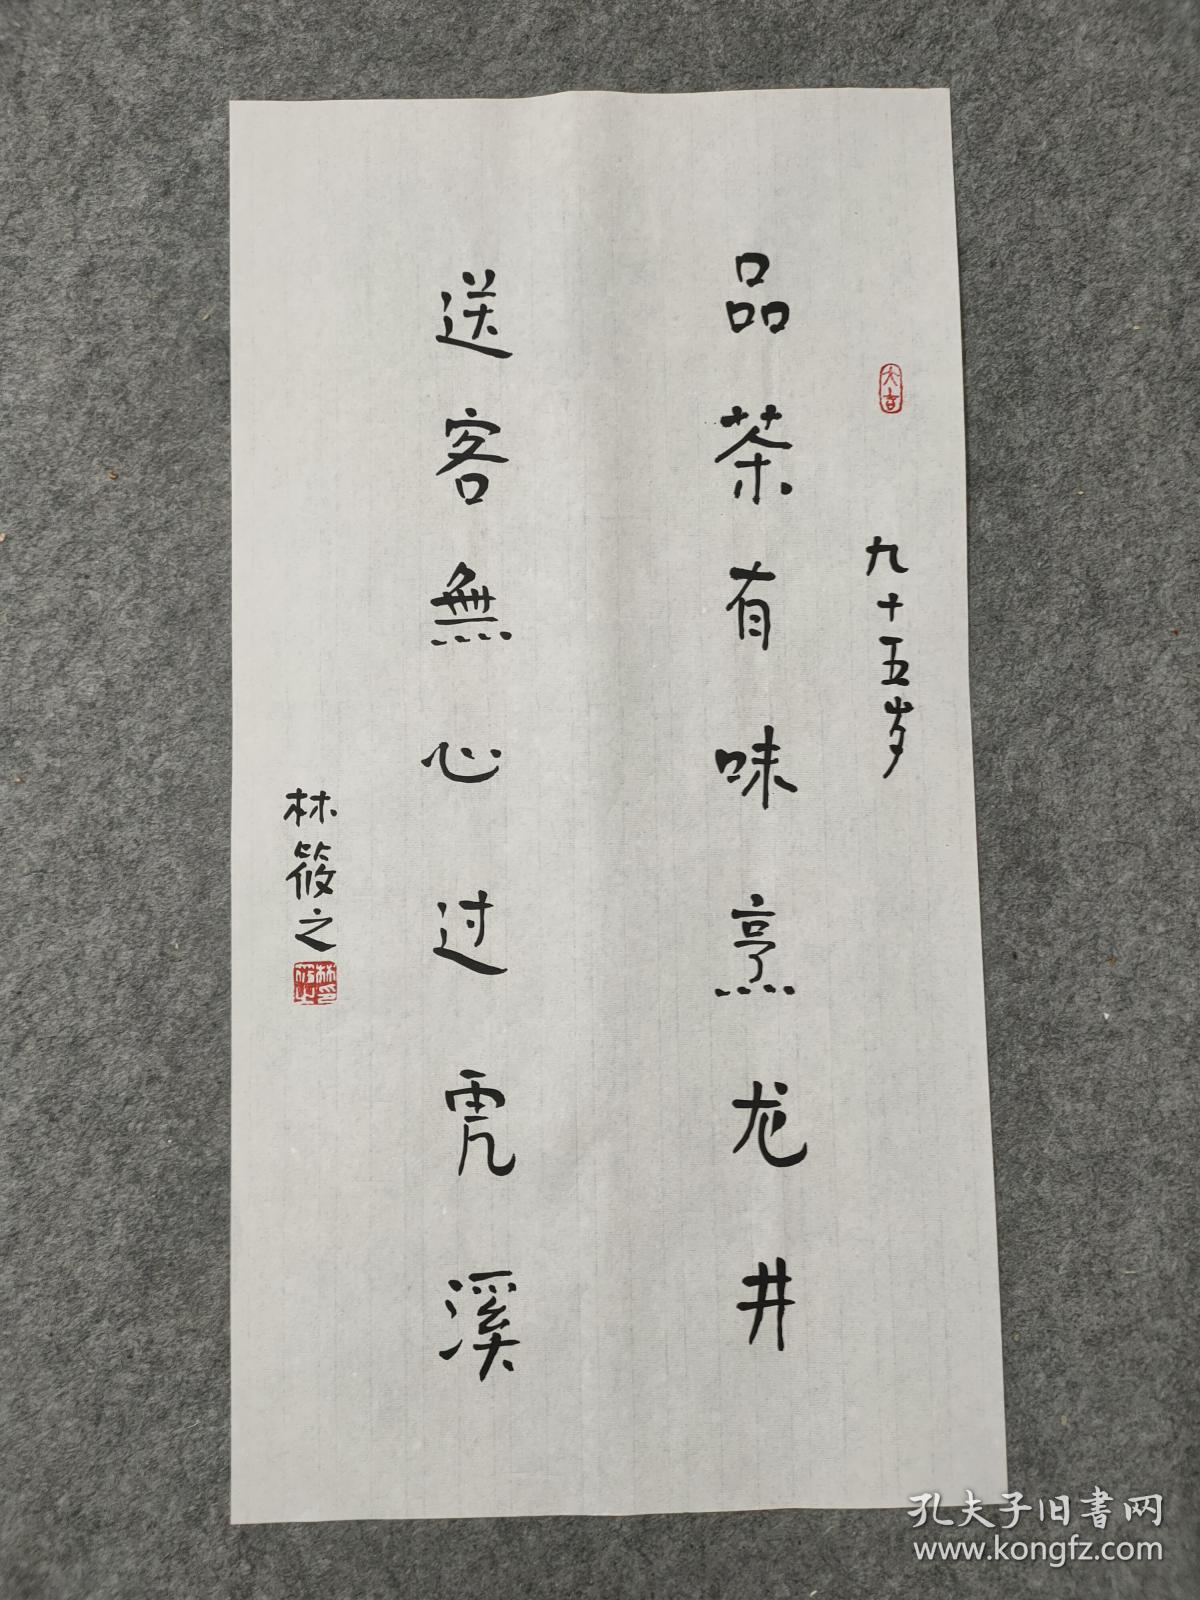 大吉
九十五岁
品茶有味烹龙井
送客無心过虎溪
林筱之
孔夫子旧書网
www.kongfz.com